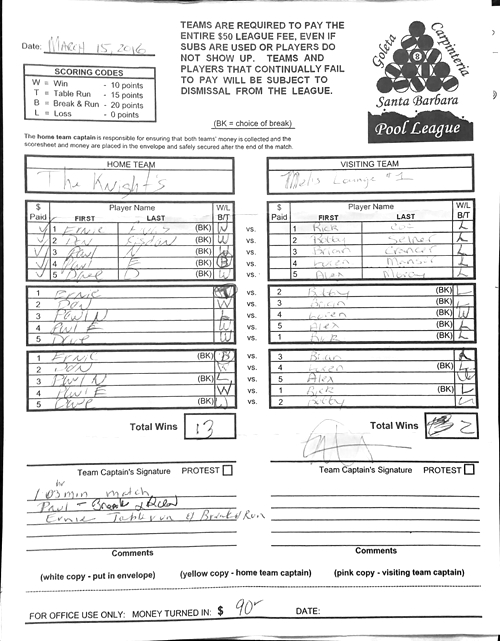 Date: MARCH 15, 2016
TEAMS ARE REQUIRED TO PAY THE
ENTIRE $50 LEAGUE FEE, EVEN IF
SUBS ARE USED OR PLAYERS DO
NOT SHOW UP. TEAMS AND
PLAYERS THAT CONTINUALLY FAIL
TO PAY WILL BE SUBJECT TO
DISMISSAL FROM THE LEAGUE.
(BK = choice of break)
SCORING CODES
W = Win - 10 points
T = Table Run - 15 points
B = Break & Run - 20 points
L = Loss - 0 points
Goleta
Carpinteria
8
Santa Barbara
Pool League
The home team captain is responsible for ensuring that both teams' money is collected and the
scoresheet and money are placed in the envelope and safely secured after the end of the match.
HOME TEAM
The Knight's
VISITING TEAM
Lounge #1
$ Paid Player Name FIRST LAST W/L B/T
$ Paid Player Name FIRST LAST W/L B/T
1 Ernie (BK) W vs. 1 Rick L
2 Don (BK) W vs. 2 Bobby L
3 Paul N (BK) W vs. 3 Brian L
4 Paul E (BK) B vs. 4 L
5 Dave (BK) W vs. 5 Alex L
1 Ernie vs. 2 Bobby (BK) L
2 Don W vs. 3 Brian (BK) L
3 Paul N L vs. 4 (BK) W
4 Paul E W vs. 5 Alex (BK) L
5 Dave W vs. 1 Rick (BK) L
1 Ernie (BK) B vs. 3 Brian L
2 Don vs. 4 (BK) L
3 Paul N (BK) L vs. 5 Alex W
4 Paul E W vs. 1 Rick (BK) L
5 Dave (BK) W vs. 2 Bobby L
Total Wins 13
Total Wins 2
Team Captain's Signature PROTEST
Team Captain's Signature PROTEST
103 min match
Paul - Break &
Ernie Table run & Break & Run
Comments
Comments
(white copy - put in envelope) (yellow copy - home team captain) (pink copy - visiting team captain)
FOR OFFICE USE ONLY: MONEY TURNED IN: $ 90 DATE: